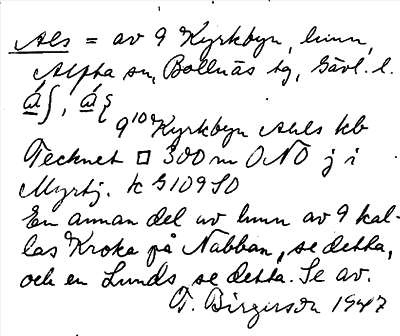 Als = av 9 Kyrkbyn, hmn,
Alfta sn, Bollnäs tg, Gävl. l.
9¹⁰ Kyrkbyn Ahls kb
Tecknet □ 300 m ONO j i
Myrtj. k G109 SO
En annan del av hmn av 9 kal-
las Kroka på Nabban, se detta,
och en Lunds, se detta. Se av.
T. Birgerson 1947